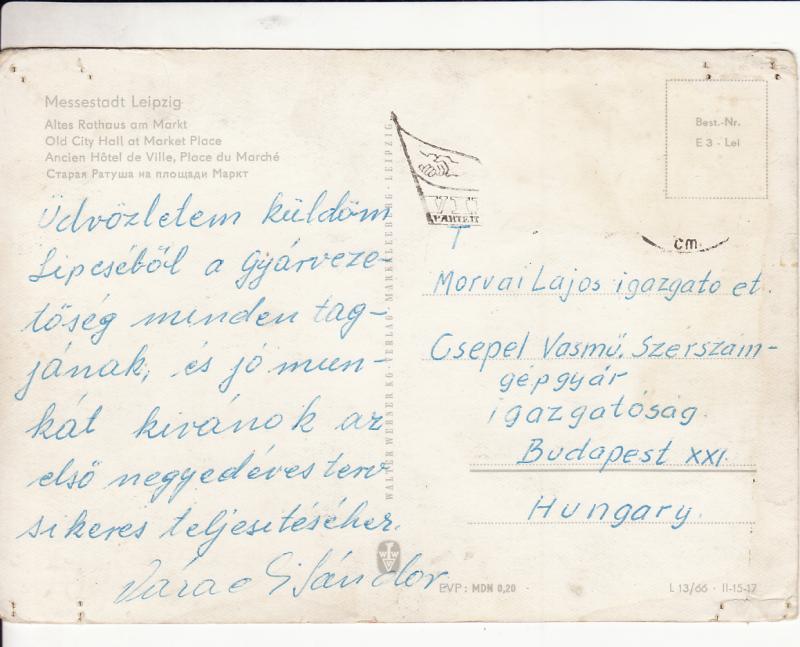 Messestadt Leipzig
Altes Rathaus am Markt
Old City Hall at Market Place
Ancien Hôtel de Ville, Place du Marché
Старая Ратуша на площади Маркт
Üdvözletem küldöm
Lipcséből a Gyárveze-
tőség minden tag-
jának, és jó mun-
kát kivánok az
első negyedéves terv
sikeres teljesitéséhez.
Sándor
WALTER WERNER KG · VERLAG · MARKKLEEBERG · LEIPZIG
VII
PARTEIT
cm.
Best.-Nr.
E 3 - Lei
Morvai Lajos igazgato et.
Csepel Vasmű. Szerszám-
gépgyár
igazgatóság.
Budapest XXI.
Hungary.
EVP: MDN 0,20
L 13/66 · II-15-17